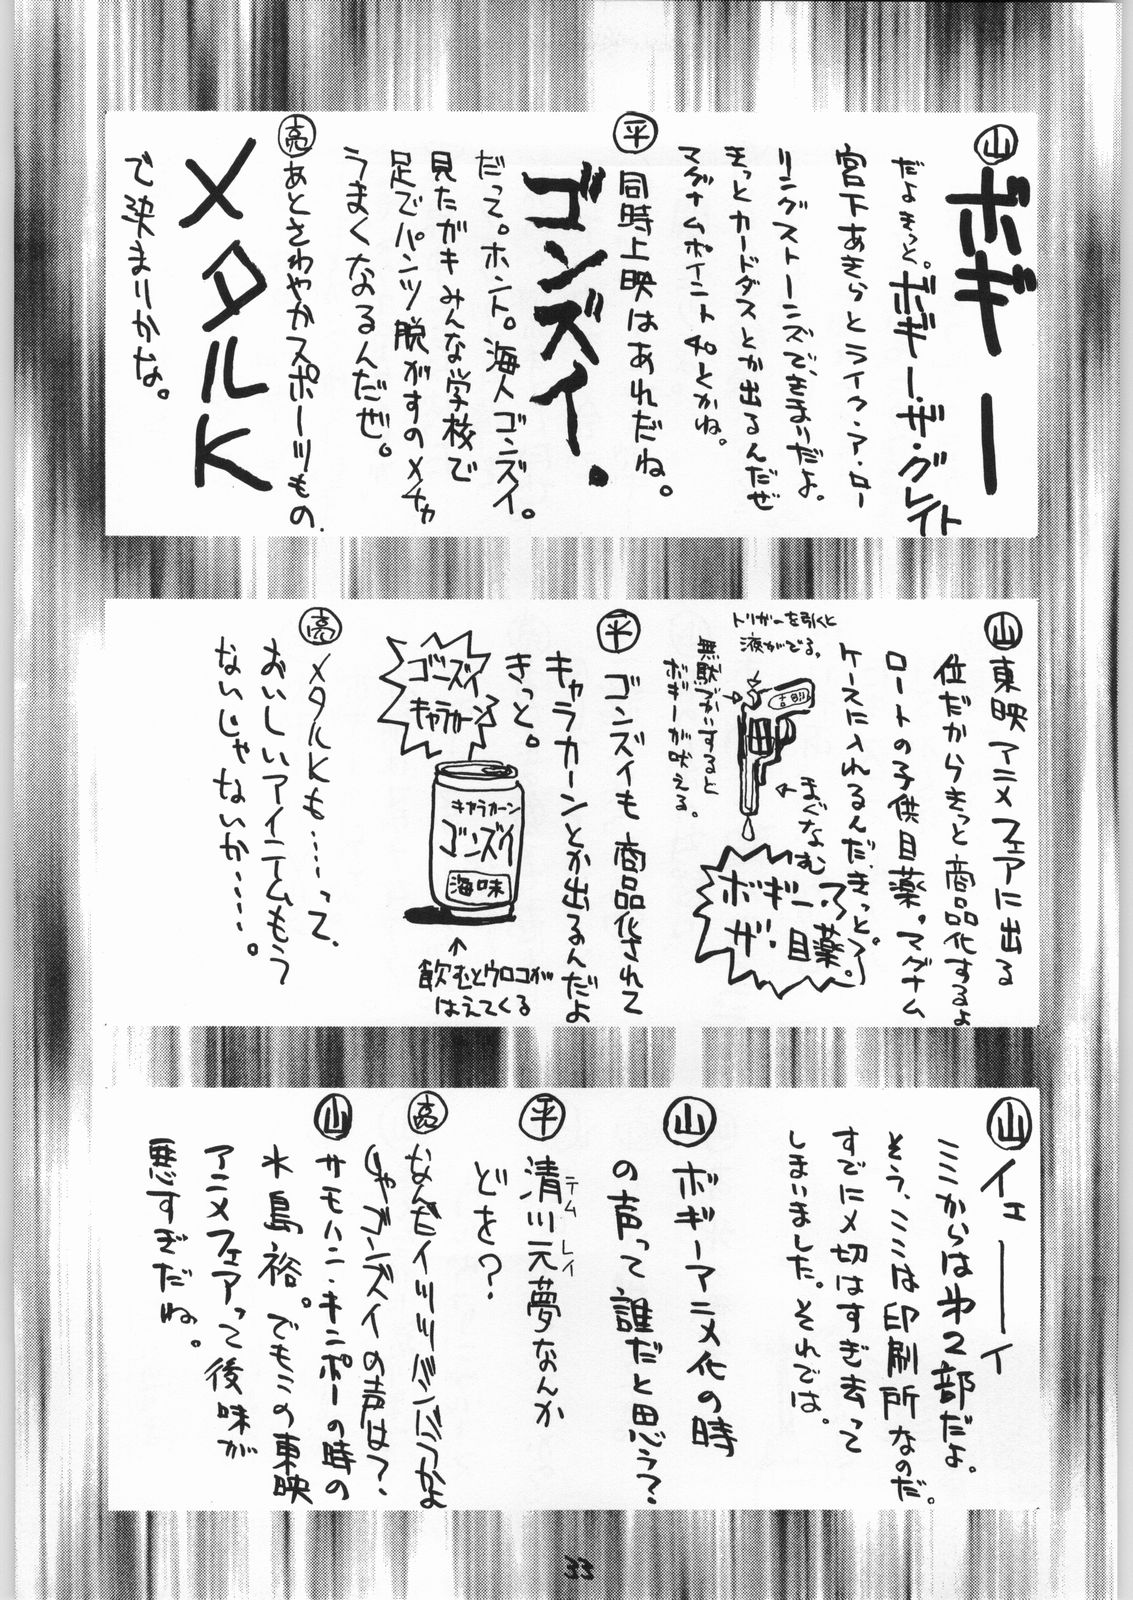 山 ボギー
だよきっと。ボギー・ザ・グレイト
宮下あきらとライク・ア・ロー
リングストーンズで、きまいだよ。
きっとカードダスとか出るんだぜ
マグナムポイント40とかね。
平 同時上映はあれだね。
ゴンズイ.
だって。ホント。海人ゴンズイ。
見たガキみんな学校で
足でパンツ脱がすのメチャ
うまくなるんだぜ。
亮 あとさわやかスポーツもの.
メタルK
で決まりかな。
山 東映アニメフェアに出る
位だからきっと商品化するよ
ロートの子供目薬。マグナム
ケースに入れるんだ、きっと。
トリガーを引くと
液がでる。
無駄づかいすると
ボギーが吠える。
まぐなむ
ボギー
ザ・目薬。
平 ゴンズイも商品化されて
キャラカーンとか出るんだよ
きっと。
ゴンズイ
キャラカーン
キャラカーン
ゴンズイ
海味
飲むとウロコが
はえてくる
亮 メタルKも……って、
おいしいアイテムもう
ないじゃないか……。
山 イェーイ
ミミからは第2部だよ。
そう、ミミは印刷所なのだ。
すでに〆切はすぎ去って
しまいました。それでは。
山 ボギーアニメ化の時
の声って誰だと思う?
平 清川元夢なんか
テム レイ
どを?
亮 なんでイッツバンバンかよ
じゃゴンズイの声は?
山 サモハン・キンポーの時の
水島裕。でもこの東映
アニメフェアって後味が
悪すぎだね。
33